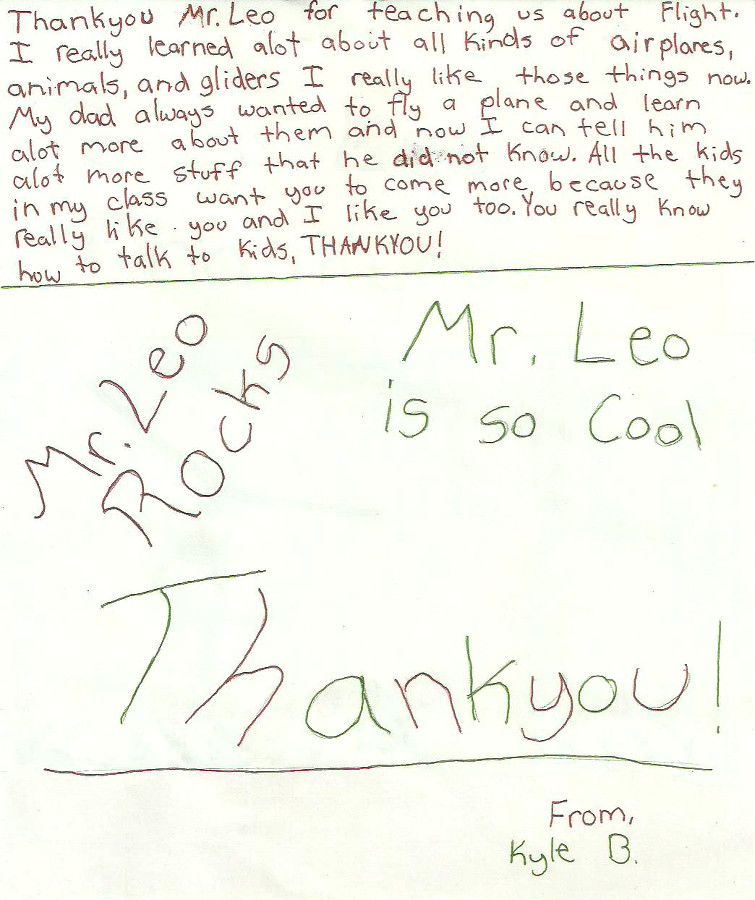 Thankyou Mr. Leo for teaching us about Flight.
I really learned alot about all kinds of airplanes,
animals, and gliders I really like those things now.
My dad always wanted to fly a plane and learn
alot more about them and now I can tell him
alot more stuff that he did not know. All the kids
in my class want you to come more, because they
really like you and I like you too. You really know
how to talk to kids, THANKYOU!
Mr. Leo
Rocks
Mr. Leo
is so Cool
Thankyou!
From,
Kyle B.